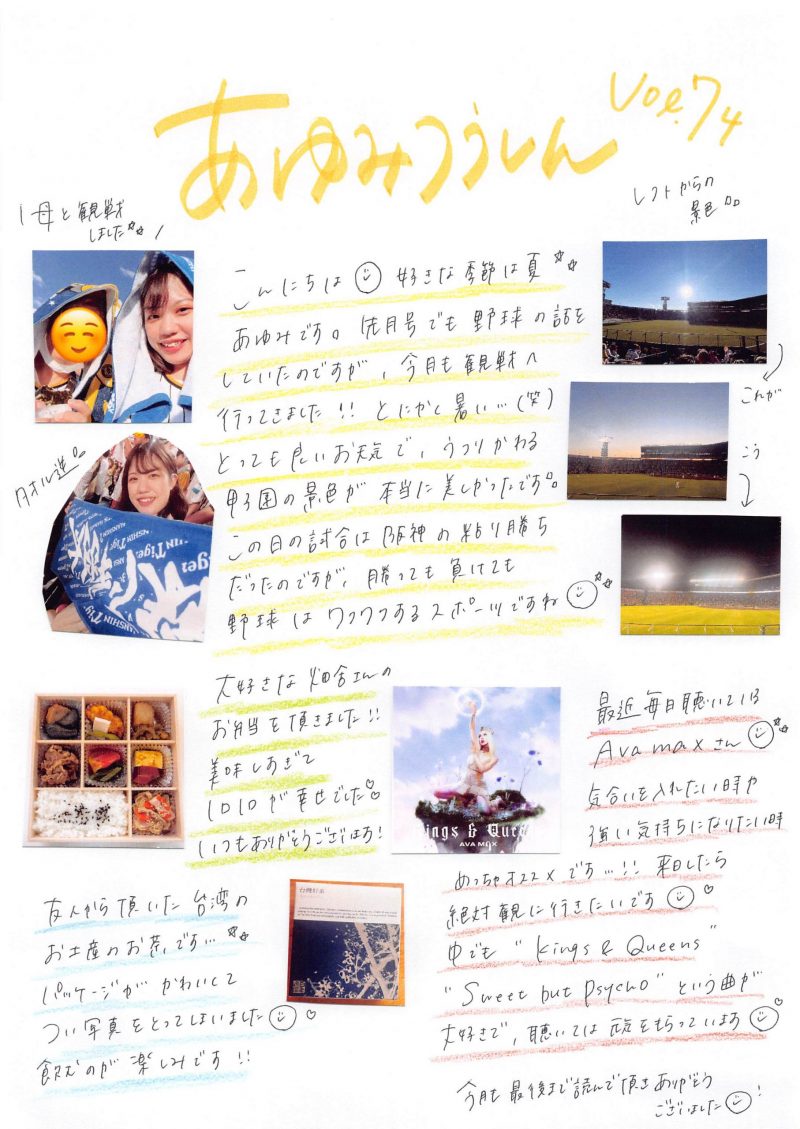 あゆみつうしん Vol.74
\母と観戦
しました☆☆/
レフトからの
景色
こんにちは 好きな季節は夏
あゆみです。先月号でも野球の話を
していたのですが、今月も観戦へ
行ってきました!! とにかく暑い…(笑)
とっても良いお天気で、うつりかわる
甲子園の景色が本当に美しかったです。
この日の試合は阪神の粘り勝ち
だったのですが、勝っても負けても
野球はワクワクするスポーツですね
こんが
こう
タオル逆
大好きな畑合さんの
お弁当を頂きました!!
美味しすぎて
口の中が幸せでした
いつもありがとうございます!
Kings & Queens
AVA MAX
最近毎日聴いている
Ava maxさん
気合いを入れたい時や
強い気持ちになりたい時
めっちゃオススメです…!! 来日したら
絶対観に行きたいです
中でも "Kings & Queens"
"Sweet but psycho" という曲が
大好きで、聴いては元気をもらっています
友人から頂いた台湾の
お土産のお茶です…
パッケージがかわいくて
つい写真をとってしまいました
飲むのが楽しみです!!
今月も最後まで読んで頂きありがとう
ございました!